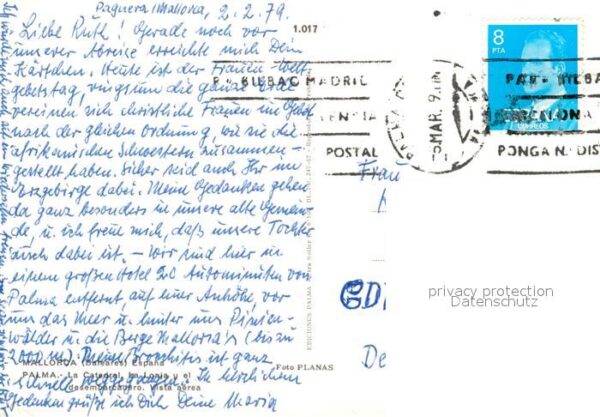 Paguera/Mallorca, 2.2.79.
Liebe Ruth! Gerade noch vor
unserer Abreise erreichte mich Dein
Kärtchen. Heute ist der Frauen-Welt-
gebetstag, rings um die ganze
vereinen sich christliche Frauen im
nach der gleichen Ordnung, wie sie die
afrikanischen Schwestern zusammen-
gestellt haben. Sicher seid auch Ihr im
Erzgebirge dabei. Meine Gedanken gehen
da ganz besonders in unsere alte Gemein-
de, u. ich freue mich, daß unsere Tochter
auch dabei ist. – Wir sind hier in
einem großen Hotel 20 Autominuten von
Palma entfernt, auf einer Anhöhe, vor
uns das Meer u. hinter uns Pinien-
wälder u. die Berge Mallorca's (bis zu
2000 m). Meine Bronchitis ist ganz
MALLORCA (Baleares) España
PALMA.- La Catedral, la Lonja y el
desembarcadero. Vista aérea
schnell weggegangen. In herzlichem
Gedenken grüße ich Dich Deine Maria
1.017
Foto PLANAS
EDICIONES PALMA
8
PTA
CORREOS
BILBAO MADRID
ENCIA
POSTAL
MAR. 9
BILBA
BARCELONA
PONGA N. DIS
Frau
GD
De
privacy protection
Datenschutz